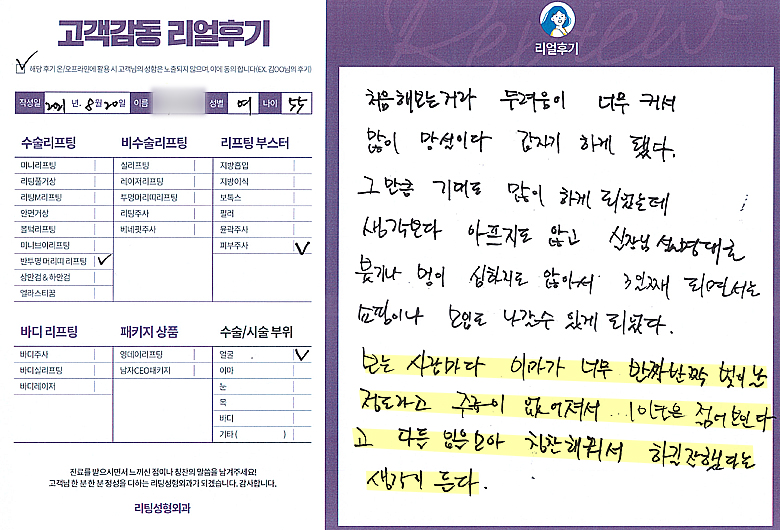 고객감동 리얼후기
해당 후기 온/오프라인에 활용 시 고객님의 성함은 노출되지 않으며, 이에 동의 합니다(EX. 김OO님의 후기)
작성일 2021년 8월 20일 이름 성별 여 나이 55
수술리프팅
미니리프팅
리팅풀거상
리팅M리프팅
안면거상
볼턱리프팅
미니브이리프팅
반투명 머리띠 리프팅
상안검 & 하안검
엘라스티꿈
비수술리프팅
실리프팅
레이저리프팅
투명머리띠리프팅
리팅주사
베네핏주사
리프팅 부스터
지방흡입
지방이식
보톡스
필러
윤곽주사
피부주사
바디 리프팅
바디주사
바디실리프팅
바디레이저
패키지 상품
영데이리프팅
남자CEO패키지
수술/시술 부위
얼굴
이마
눈
목
바디
기타 ( )
진료를 받으시면서 느끼신 점이나 칭찬의 말씀을 남겨주세요!
고객님 한 분 한 분 정성을 다하는 리팅성형외과가 되겠습니다. 감사합니다.
리팅성형외과
Review
리얼후기
처음해보는거라 두려움이 너무 커서
많이 망설이다 갑자기 하게 됐다.
그만큼 기대도 많이 하게 되었는데
생각보다 아프지도 않고 원장님 설명대로
붓기나 멍이 심하지도 않아서 3일째 되면서는
쇼핑이나 모임도 나갈수 있게 되었다.
보는 사람마다 이마가 너무 반짝반짝 빛이 난
정도라고 주름이 없어져서 10년은 젊어보인다
고 다들 입을모아 칭찬해줘서 하길 잘했다는
생각이 든다.